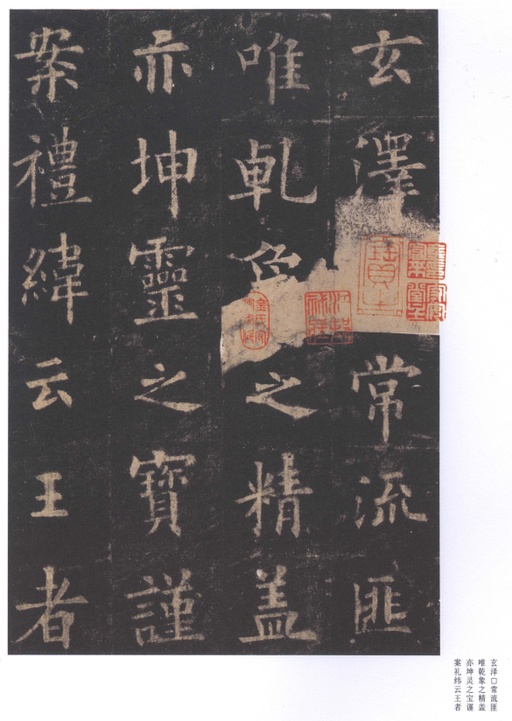 玄澤常流匪
唯乹象之精盖
亦坤靈之寶謹
案禮緯云王者
玄泽□常流匪
唯乾象之精盖
亦坤灵之宝谨
案礼纬云王者